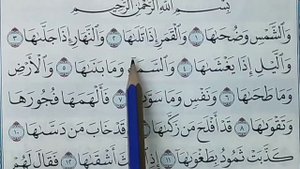 بِسْمِ اللَّهِ الرَّحْمَٰنِ الرَّحِيمِ
وَالشَّمْسِ وَضُحَىٰهَا ١ وَالْقَمَرِ إِذَا تَلَىٰهَا ٢ وَالنَّهَارِ إِذَا جَلَّىٰهَا ٣
وَالَّيْلِ إِذَا يَغْشَىٰهَا ٤ وَالسَّمَاءِ وَمَا بَنَىٰهَا ٥ وَالْأَرْضِ
وَمَا طَحَىٰهَا ٦ وَنَفْسٍ وَمَا سَوَّ ٧ فَأَلْهَمَهَا فُجُورَهَا
وَتَقْوَىٰهَا ٨ قَدْ أَفْلَحَ مَن زَكَّىٰهَا ٩ وَقَدْ خَابَ مَن دَسَّىٰهَا ١٠
كَذَّبَتْ ثَمُودُ بِطَغْوَىٰهَا ١١ إِذِ أَشْقَىٰهَا ١٢ فَقَالَ لَهُمْ